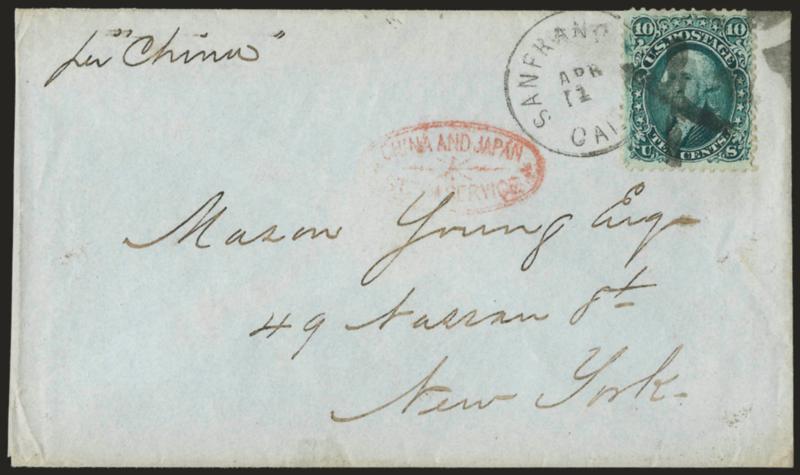 per "China"
SAN FRAN
APR
12
CAL
10 10
U.S. POSTAGE
TEN CENTS
U S
CHINA AND JAPAN
SERVICE
Mason Young Esq
49 Nassau St
New York.